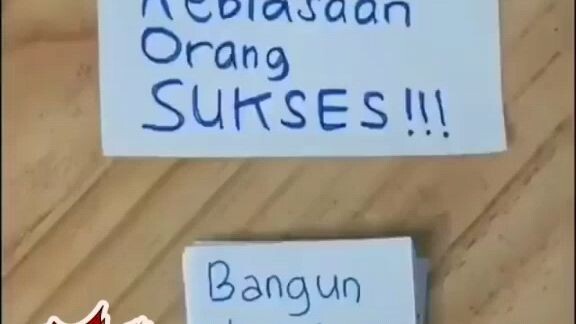 Kebiasaan
Orang
SUKSES!!!
Bangun